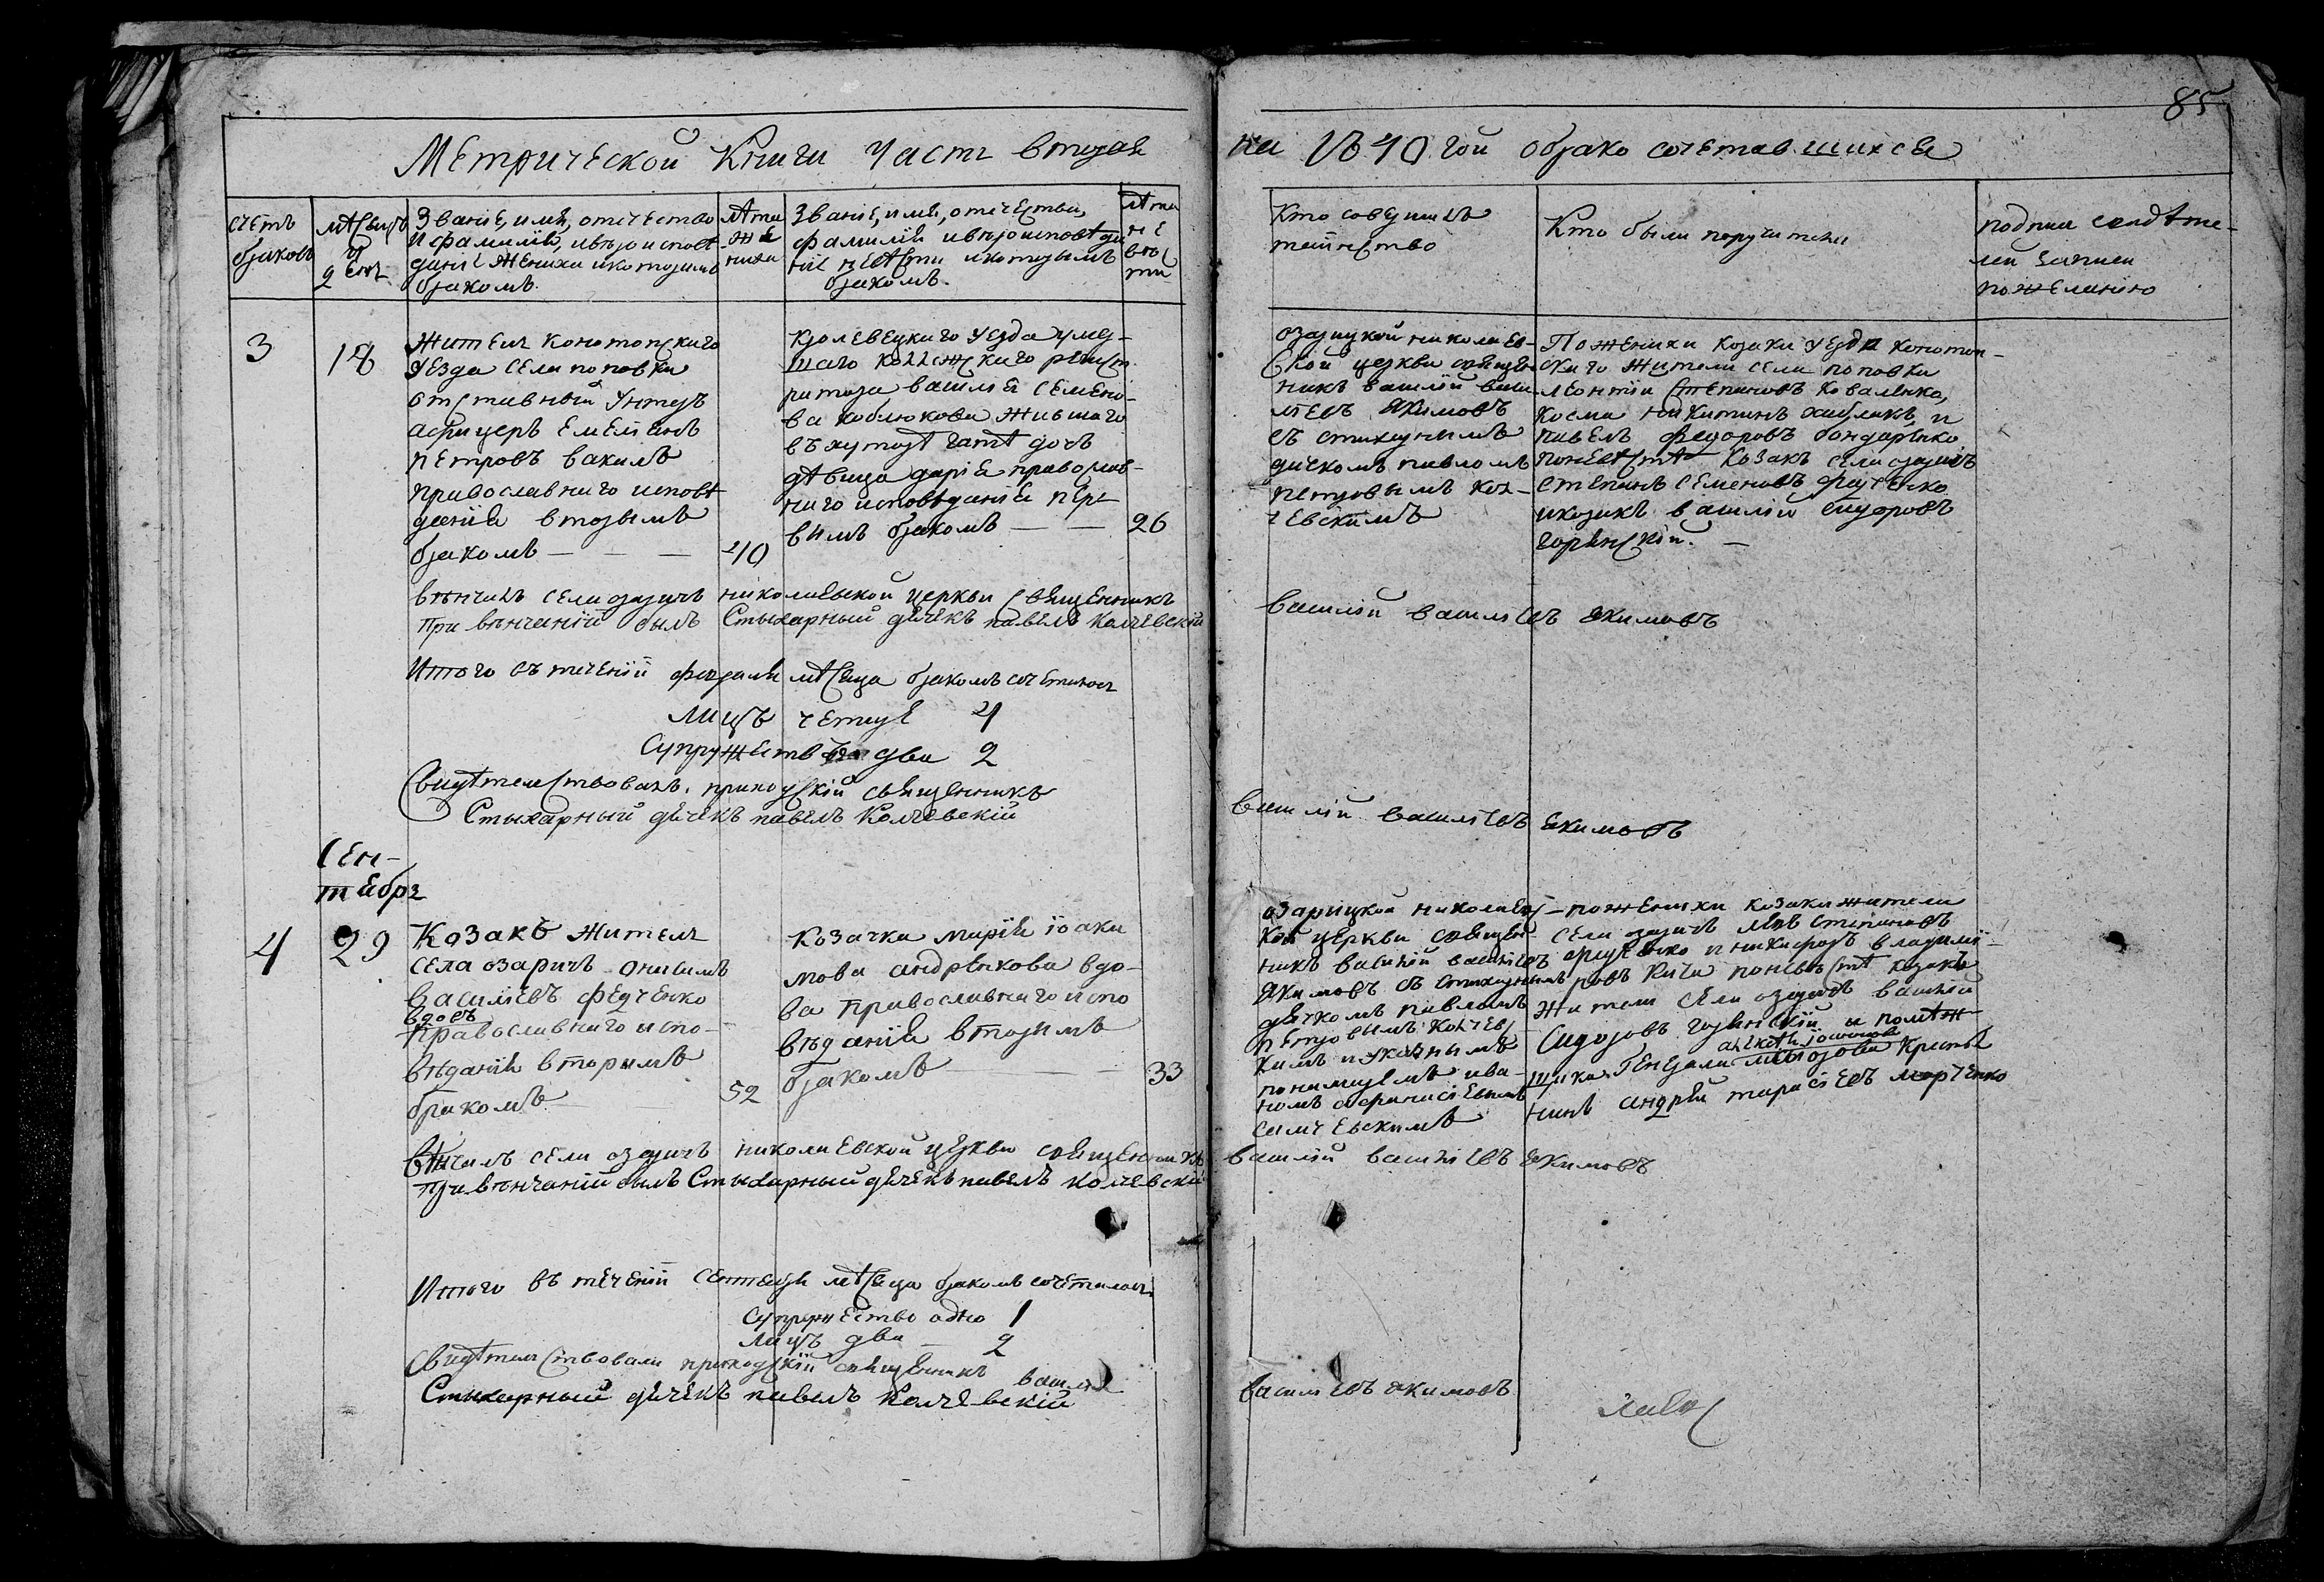 85
Метрической Книги Часть вторая
на 1840 гой о брако сочетавшихся
счетъ
браковъ
мѣсяцъ
и
день
Званіе, имя, отечество
и фамилія, и вѣроисповѣ
даніе жениха и которымъ
бракомъ.
лѣта
же
ниха
Званіе, имя, отечество,
фамилія и вѣроисповѣда
ніе невѣсты и которымъ
бракомъ.
лѣта
не
вѣс
ты
Кто совершилъ
таинство
Кто были поручители
подпись свидѣте-
лей записи
по желанію
3
18
житель конотопскаго
уезда села поповки
отставный унтеръ
афицеръ емелянъ
петровъ вакилъ
православнаго исповѣ
данія вторымъ
бракомъ
40
кролевецкаго уезда умер-
шаго коллежскаго регист
ратора василія семено-
ва коблюкова жившаго
въ хуторѣ гатѣ дочь
дѣвица дарія православ-
наго исповѣданія пер
вымъ бракомъ
26
озарицкой николаев-
ской церкви священ
никъ василій васи-
льевъ якимовъ
съ стихарнымъ
дьячкомъ павломъ
петровымъ кол-
чевскимъ
По женихи козаки уезда конотоп-
скаго жители села поповки
леонтій степановъ коваленко,
косма никитинъ хибликъ, и
павелъ федоровъ бондаренко
по невѣстѣ козакъ села озаричъ
степанъ семеновъ федченко
и козакъ василій сидоровъ
горенскій.
вѣнчалъ села озаричъ николаевской церкви священникъ
При вѣнчаніи былъ Стыхарный дячекъ павелъ колчевскій
василій васильевъ якимовъ
Итого въ теченіи февраля мѣсяца бракомъ сочеталось
лицъ четыре 4
Супружества два 2
Свидѣтельствовалъ приходскій священникъ
Стыхарный дячекъ павелъ Колчевскій
василій васильевъ якимовъ
Сен-
тябрь
4
29
Козакъ житель
села озаричъ онисимъ
василіевъ федченко
вдовъ
православнаго испо-
вѣданія вторымъ
бракомъ
52
Козачка марія іоаки
мова андреикова вдо-
ва православнаго испо
вѣданія вторымъ
бракомъ
33
озарицкой николаевс-
кой церкви священ
никъ василій васильевъ
якимовъ съ стихарнымъ
дьячкомъ павломъ
петровымъ колчевс
кимъ и указнымъ
понамаремъ ива-
номъ афанасіевымъ
самчевскимъ
по женихи козаки жители
села озаричъ левъ степановъ
федченко и никифоръ владимі-
ровъ кича по невѣстѣ козакъ
житель села озаричъ василій
Сидоровъ горенскій и помѣ-
щика генерала алексѣя іосифова маіорова крестья
нинъ андрей тарасіевъ марченко
вѣнчалъ села озаричъ николаевской церкви священникъ
При вѣнчаніи былъ Стыхарный дячекъ павелъ колчевскій
василій васильевъ якимовъ
Итого въ теченіи сентября мѣсяца бракомъ сочеталось
Супружество одно 1
лицъ два 2
Свидѣтельствовали приходскій священникъ василій
васильевъ якимовъ
Стыхарный дячекъ павелъ Колчевскій